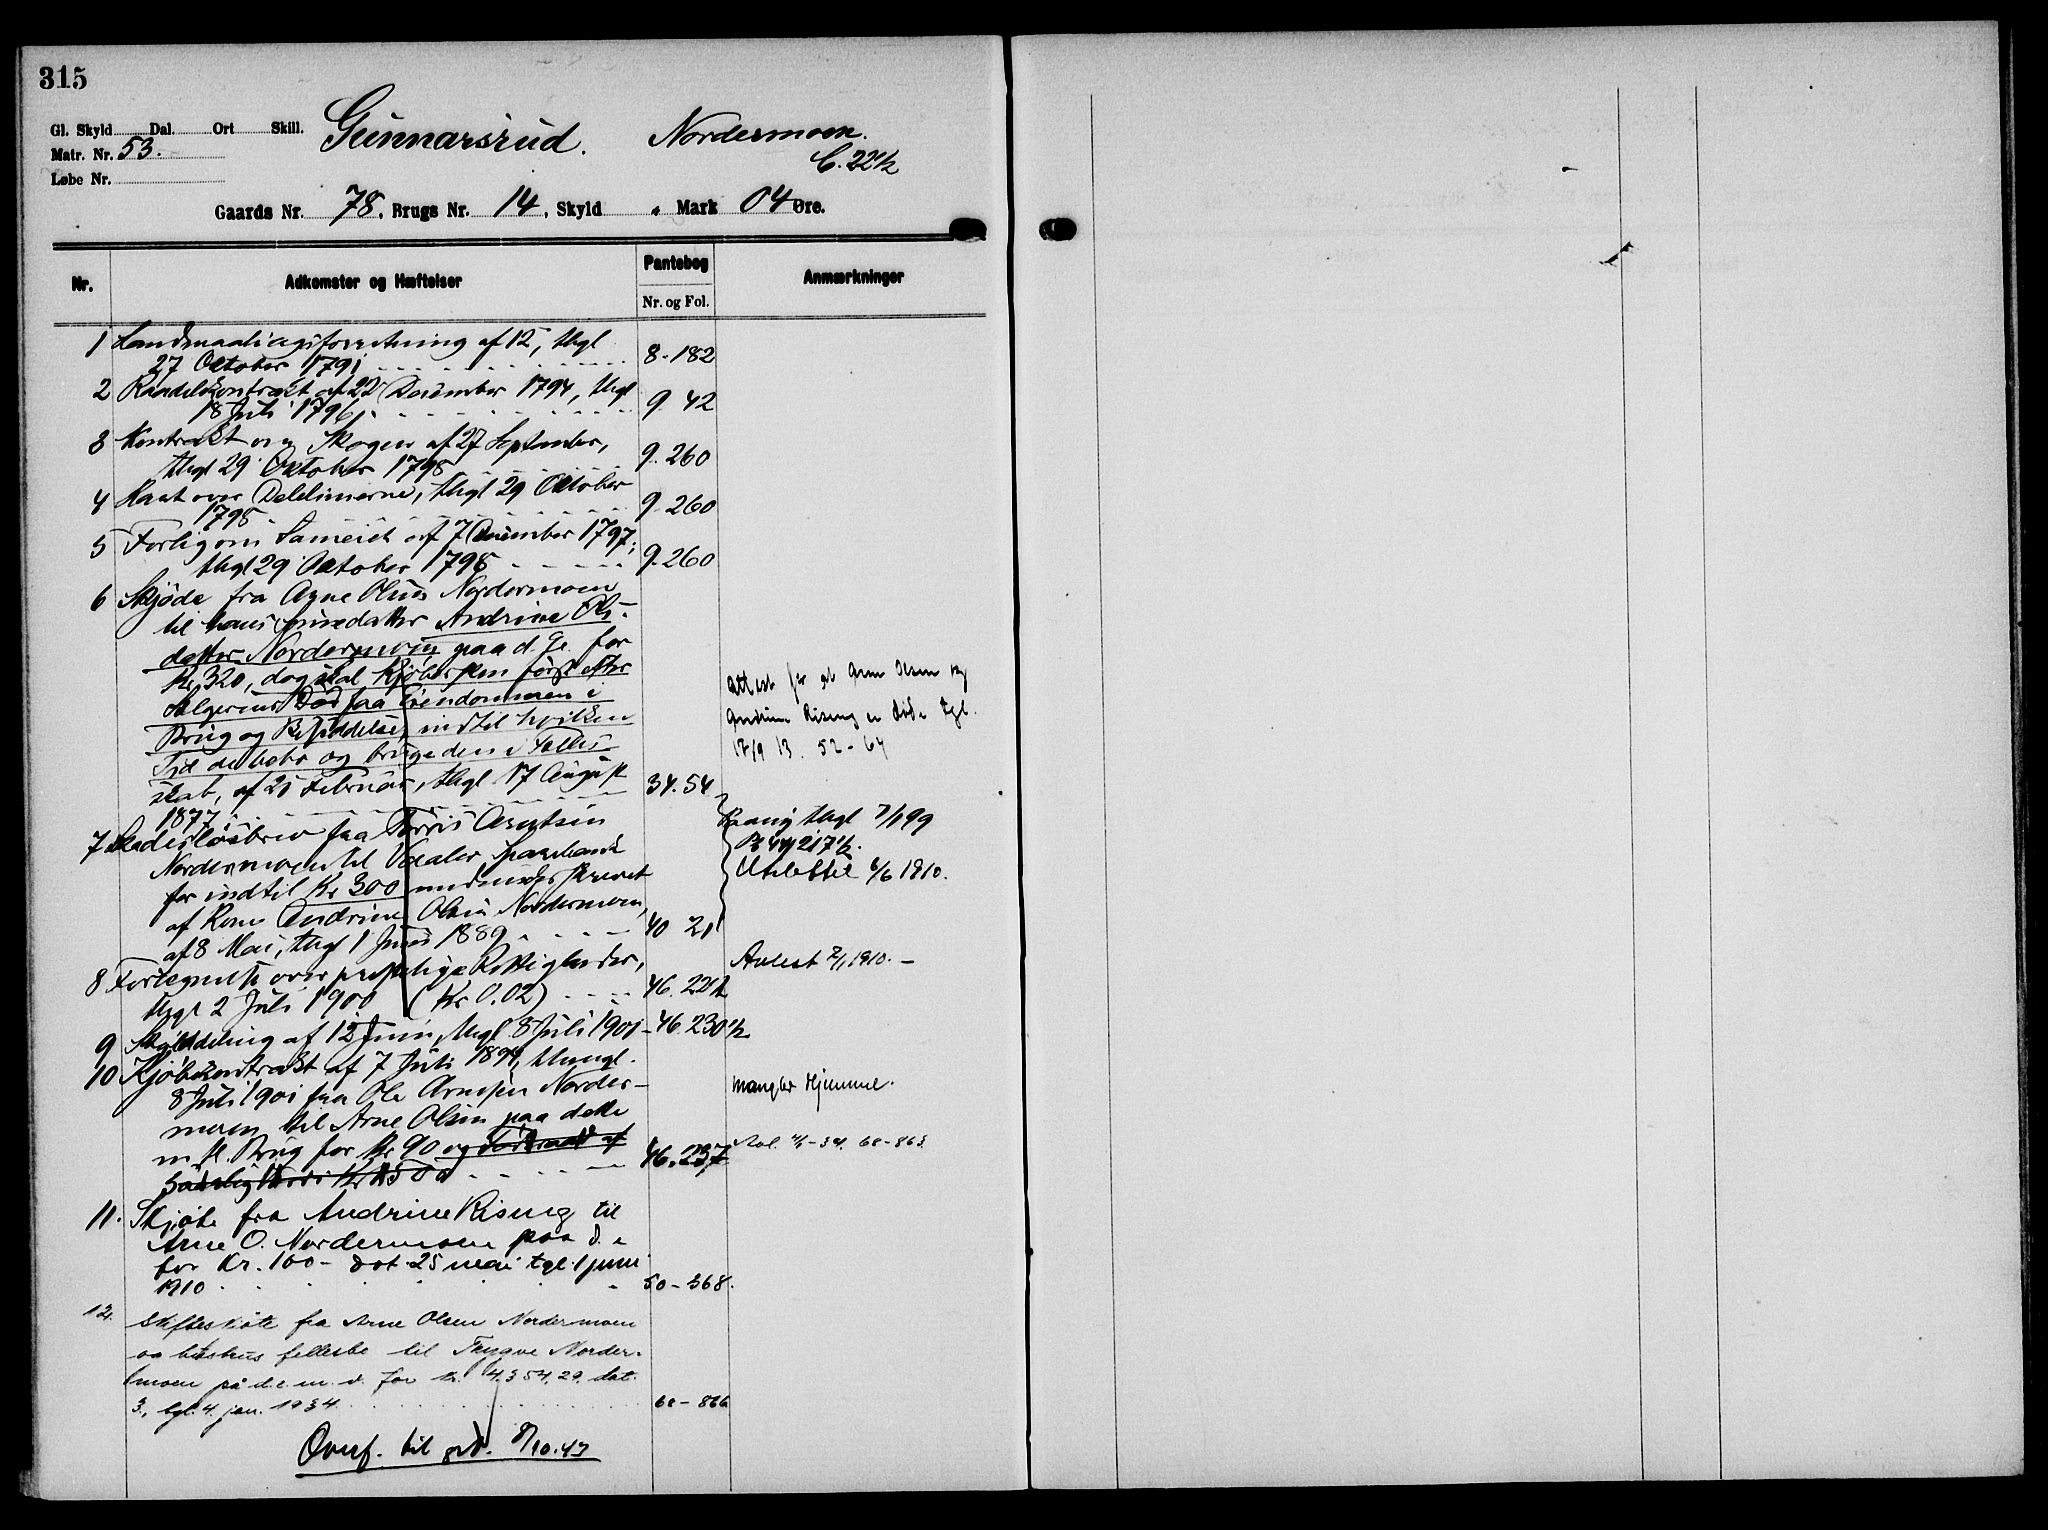 315
Gl. Skyld Dal. Ort Skill. Gunnarsrud. Nordermoen.
Matr. Nr. 53. C. 22½
Løbe Nr.
Gaards Nr. 78, Brugs Nr. 14, Skyld " Mark 04 Øre.
Nr. Adkomster og Hæftelser Pantebog Anmærkninger
Nr. og Fol.
1 Landmaalingsforretning af 12, thgl
27 Oktober 1791 8-182
2 Kontrakt af 22 December 1794, thgl
18 Juli 1796 9. 42
3 Kontrakt om Skogen af 27 September,
thgl 29 Oktober 1798 9. 260
4 Kart over Delelinierne, thgl 29 Oktober
1798 9. 260
5 Forlig om Sameiet af 7 December 1797,
thgl 29 Oktober 1798 9. 260
6 Skjøde fra Arne Olsen Nordermoen
til hans Andrine Ols-
datter Nordermoen paa d. Ge. for
Kr. 320, dog skal Kjøbersken først efter
Sælgerens Død faa Eiendommen i
Brug og Besiddelse, indtil hvilken
Tid de bebor og bruge den i Fælles-
skab, af 21 Februar, thgl 17 August
1877 34. 54
Attest for at Arne Olsen og
Andrine Riseng er døde tgl.
17/9 13. 52-64
7 Skadesløsbrev fra Arntsen
Nordermoen til Vaaler Sparebank
for indtil Kr 300 underskrevet
af Kone Andrine Olsen Nordermoen,
af 8 Mai, thgl 1 Juni 1889 40 21
thgl 7/1 99
Pb 44, 217½.
Udslettet 6/6 1910.
8 Fortegnelse over Rettigheder,
thgl 2 Juli 1900 (Kr 0.02) 46. 221½
Avlest 2/1 1910. –
9 Skylddeling af 12 Juni, thgl 8 Juli 1901 - 46. 230½
10 Kjøbekontrakt af 7 Juli 1894, thingl.
8 Juli 1901 fra Ole Arnesen Norder-
moen til Arne Olsen paa dette
m. fl. Brug for Kr. 90 og Forbrand af
46. 237
mangler Hjemmel.
Avl. 4/1-34. 60-863
11. Skjøte fra Andrine Riseng til
Arne O. Nordermoen paa d. e
for Kr. 100- dat 25 mai tgl. 1 juni
1910 50-368.
12. Skifteskøte fra Arne Olsen Nordermoen
og hustrus fellesbo til Trygve Norder-
moen på d. e. m. v. for kr. 4.354,29, dat.
3., tgl. 4. jan. 1934 60-866
Overf. til grb. 8/10.43